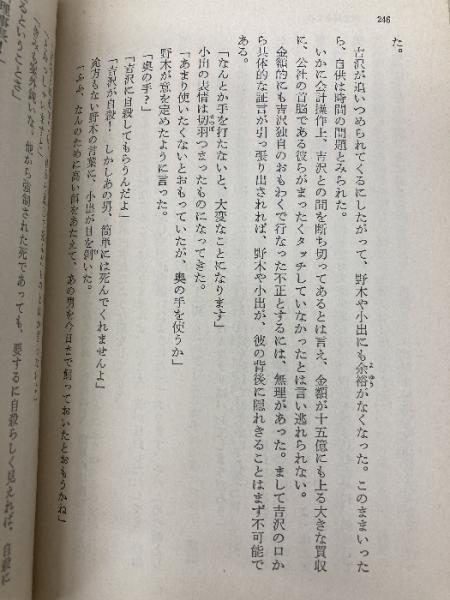 246
た。
吉沢が追いつめられてくるにしたがって、野木や小出にも余裕がなくなった。このままいった
ら、自供は時間の問題とみられた。
いかに会計操作上、吉沢との間を断ち切ってあるとは言え、金額が十五億にも上る大きな買収
に、公社の首脳である彼らがまったくタッチしていなかったとは言い逃れられない。
金額的にも吉沢独自のおもわくで行なった不正とするには、無理があった。まして吉沢の口か
ら具体的な証言が引っ張り出されれば、野木や小出が、彼の背後に隠れきることはまず不可能で
ある。
「なんとか手を打たないと、大変なことになります」
小出の表情は切羽つまったものになってきた。
「あまり使いたくないとおもっていたが、奥の手を使うか」
野木が意を定めたように言った。
「奥の手？」
「吉沢に自殺してもらうんだよ」
「吉沢が自殺！　しかしあの男、簡単には死んでくれませんよ」
途方もない野木の言葉に、小出が目を剝いた。
「ふふ、なんのために高い餌をあたえて、あの男を今日まで飼っておいたとおもうかね」
他から強制された死であっても、要するに自殺らしく見えれば、自殺に
るということさ」